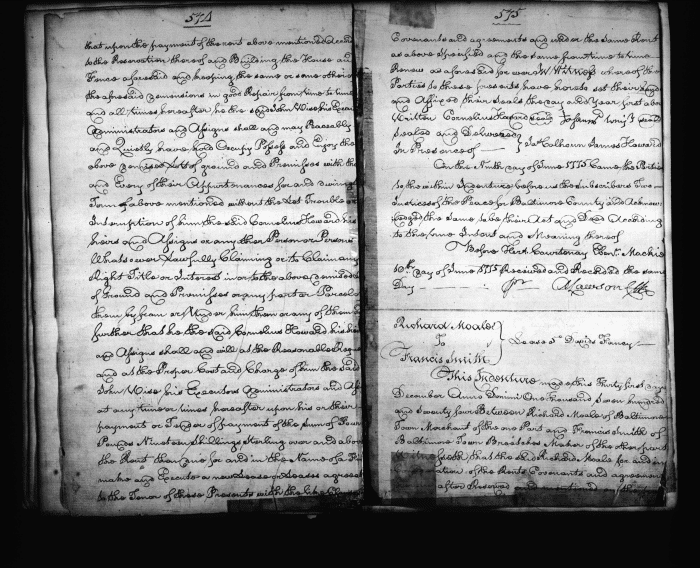 574
that upon the payment of the rent above mentioned and
to the Reservation thereof and Building the House and
Fence aforesaid and keeping the same or some other of
the aforesaid Dimensions in good Repair from time to time
and all times hereafter he the said John Wise his Execu
Administrators and Assigns shall and may Peaceably
and Quietly have hold Occupy Possess and Enjoy the
above Demised Lot of ground and Premisses with the
and Every of their Appurtenances for and during
Term of above mentioned without the Let Trouble or
Interuption of him the said Cornelius Howard his
heirs and Assigns or any other Person or Persons
Whatsoever Lawfully Claiming or to Claim any
Right Title or Interest in or to the above demised
of Ground and Premisses or any part or Parcel
them by from or Under him them or any of them
further that he the said Cornelius Howard his heirs
and Assigns shall and will at the Reasonable Reques
and at the Proper Cost and Charge of him the said
John Wise his Executors Administrators and As
at any time or times hereafter upon his or their
payment or Tender of payment of the sum of Four
Pounds Nineteen Shillings Sterling over and above
the Rent than due for and in the name of a Fine
make and Execute a new Lease or Leases agreeable
to the Tenor of these Presents with the like
575
Covenants and agreements and under the same Rent
as above Specified and the same from time to time
Renew as aforesaid for ever In Witness whereof the
Parties to these presents have hereto set their hands
and Affixed their Seals the day and year first above
Written Cornelius Howard seal Johann Wise seal
Sealed and Delivered
In Presence of } Jas Calhoun James Howard
On the Ninth day of June 1775 Came the Parties
to the within Indenture before us the Subscribers Two
Justices of the Peace for Baltimore County and Acknow
ledged the same to be their Act and Deed According
to the true Intent and Meaning thereof
Before Hert. Courtenay Eben. Mackie
10th day of June 1775 Received and Recorded the same
Day
A Lawson Clk
Richard Moale
To
Francis Smith
Lease Do Davids Fancy
This Indenture made this Thirty first day
December Anno Domini One thousand Seven hundred
and Seventy four Between Richard Moale of Baltimore
Town Merchant of the one Part and Francis Smith of
Baltimore Town Breeches Maker of the other part
Witnesseth that the said Richard Moale for and in
of the Rents Covenants and agreements
after Reserved and mentioned